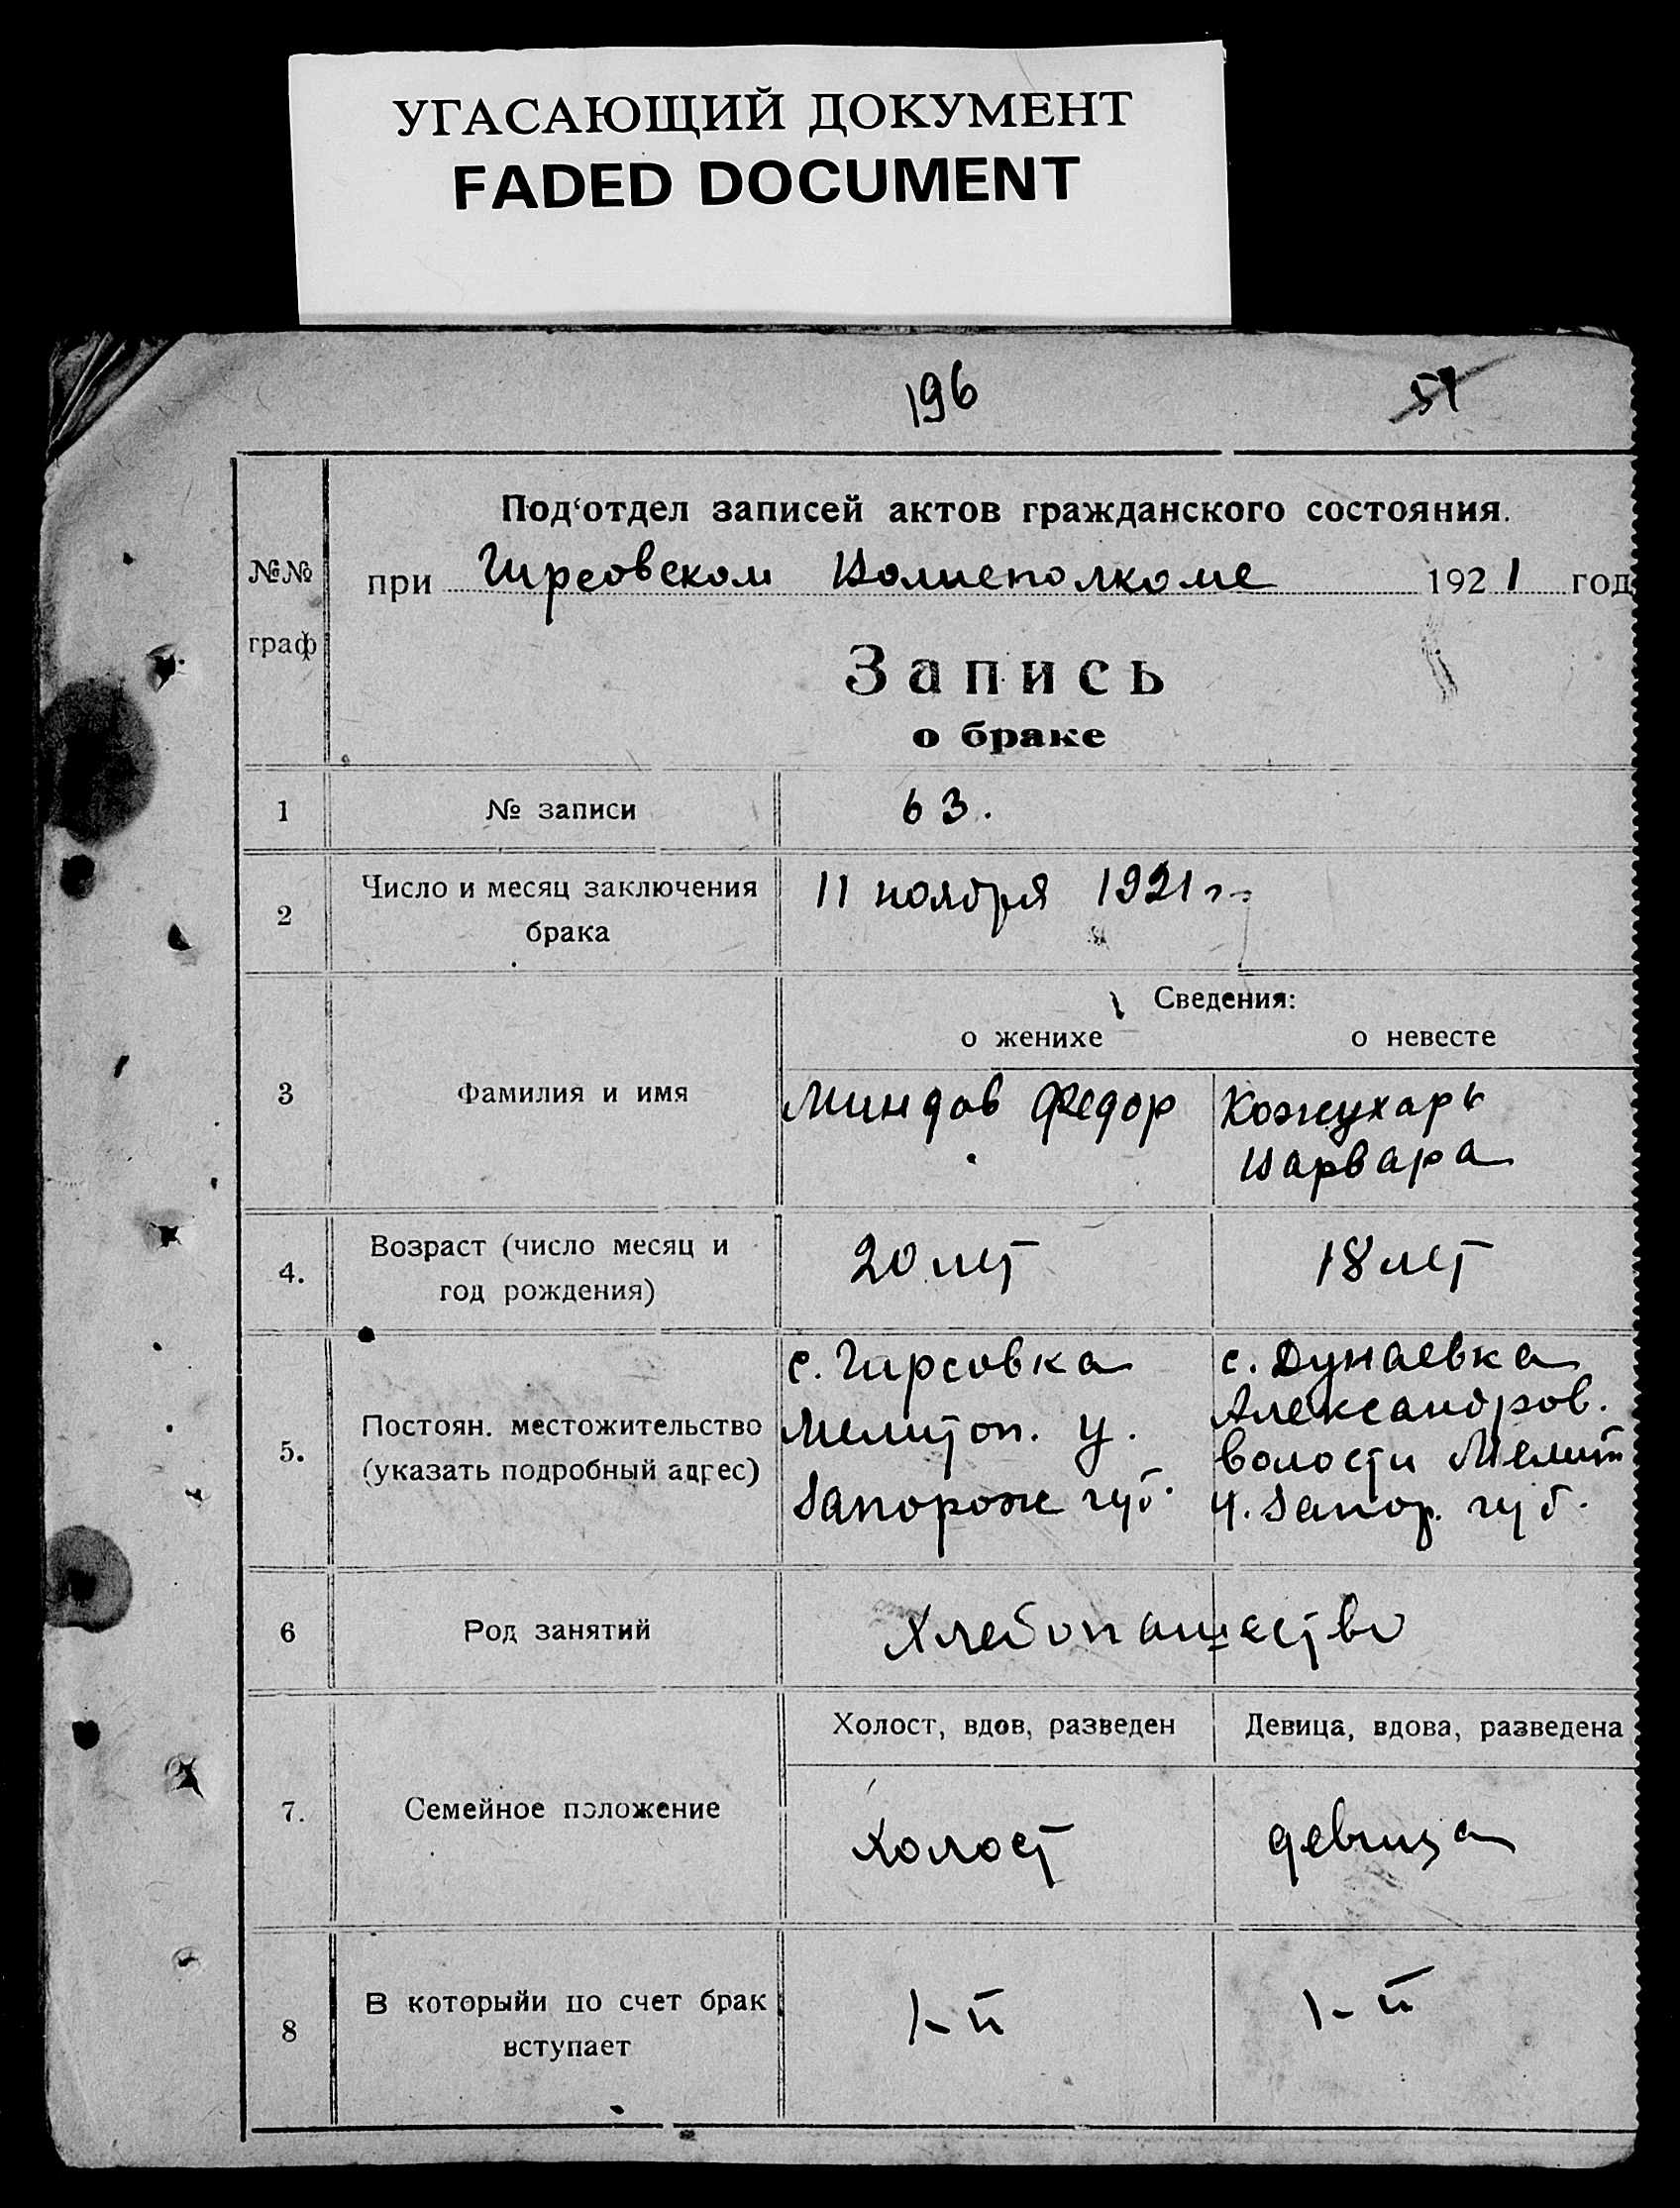 УГАСАЮЩИЙ ДОКУМЕНТ
FADED DOCUMENT
196 51
Под‘отдел записей актов гражданского состояния.
№№ при Гирсовском Волисполкоме 1921 год
граф
Запись
о браке
1 № записи 63.
2 Число и месяц заключения брака 11 ноября 1921 г.
Сведения:
о женихе о невесте
3 Фамилия и имя Миндов Федор Кожухарь
Варвара
4. Возраст (число месяц и год рождения) 20 лет 18 лет
с. Гирсовка с. Дунаевка
5. Постоян. местожительство Мелитоп. у. Александров.
(указать подробный адрес) Запорож губ. волости Мелит
у. Запор. губ.
6 Род занятий Хлебопашество
Холост, вдов, разведен Девица, вдова, разведена
7. Семейное положение холост девица
8 В которыйи по счет брак вступает 1-й 1-й